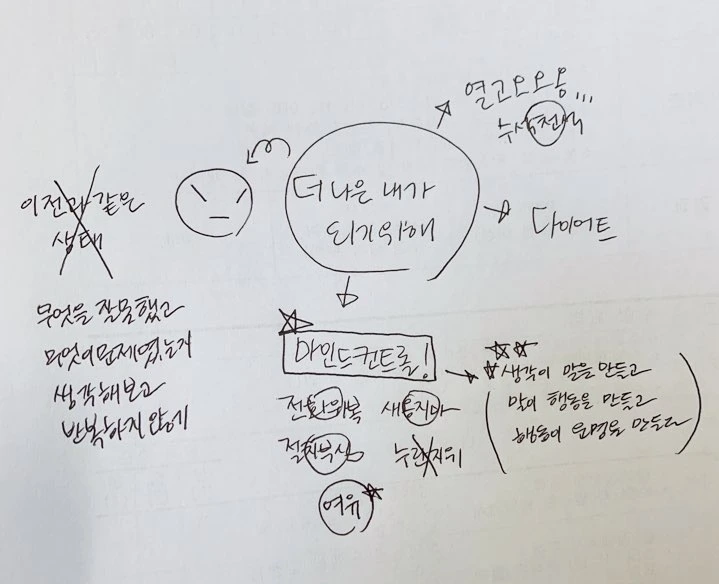 열고오오옹...
더 나은 내가
되기위해
다이어트
이전과 같은
상태
무엇을 잘못했고
무엇이 문제였는지
생각해보고
반복하지 않게
마인드컨트롤!
전화위복 새옹지마
절치부심 누란지위
여유
생각이 말을 만들고
말이 행동을 만들고
행동이 운명을 만든다